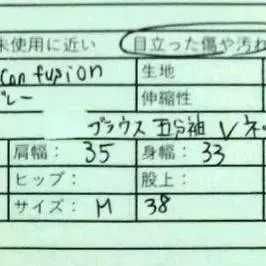 未使用に近い 目立った傷や汚れ
Con fusion 生地
グレー 伸縮性
ブラウス 五分袖 Vネ
肩幅： 35 身幅： 33
ヒップ： 股上：
サイズ： M 38